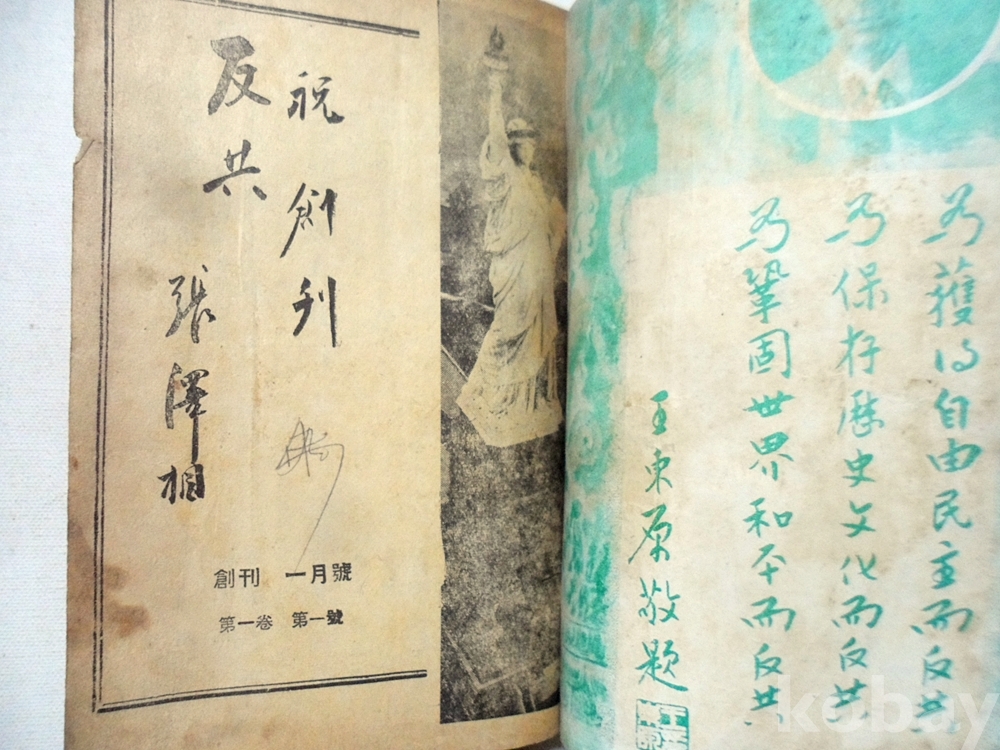 祝創刊
反共
張澤相
創刊 一月號
第一卷 第一號
為獲得自由民主而反共
為保存歷史文化而反共
為鞏固世界和平而反共
王東原敬題
kobay